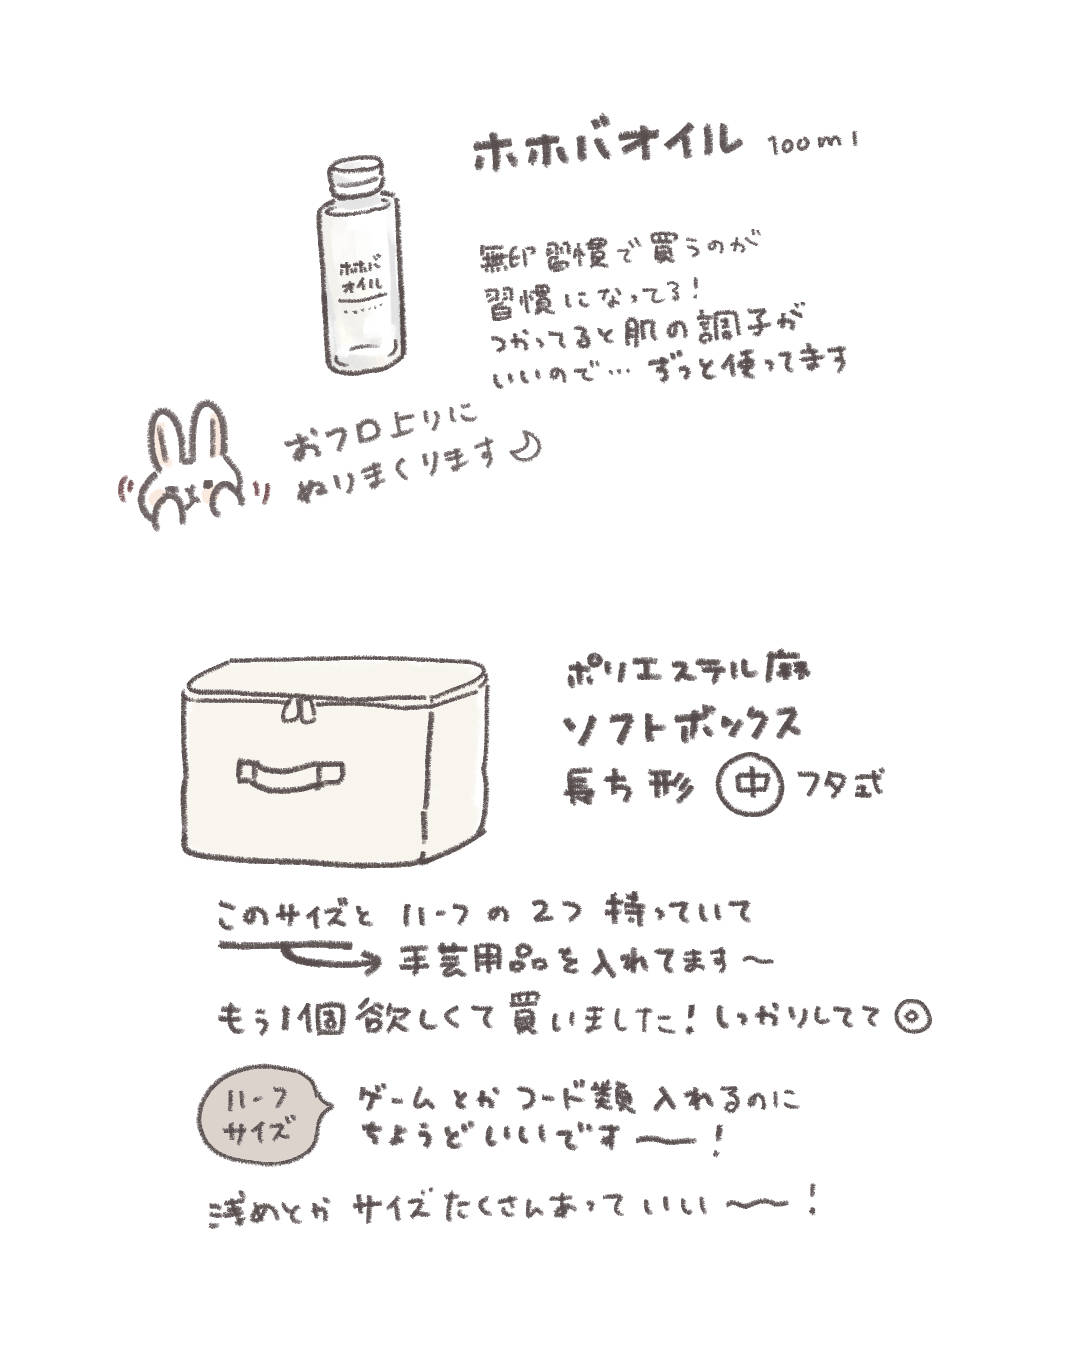 ホホバオイル 100ml
無印習慣で買うのが
習慣になってる!
つかってると肌の調子が
いいので… ずっと使ってます
ホホバ
オイル
おフロ上りに
ぬりまくります
ポリエステル麻
ソフトボックス
長ち形 中 フタ式
このサイズと ハーフの 2つ 持っていて
手芸用品を入れてます〜
もう1個欲しくて買いました! しっかりしてて◎
ハーフ
サイズ
ゲームとか コード類 入れるのに
ちょうどいいです〜!
浅めとか サイズたくさんあって いい〜!